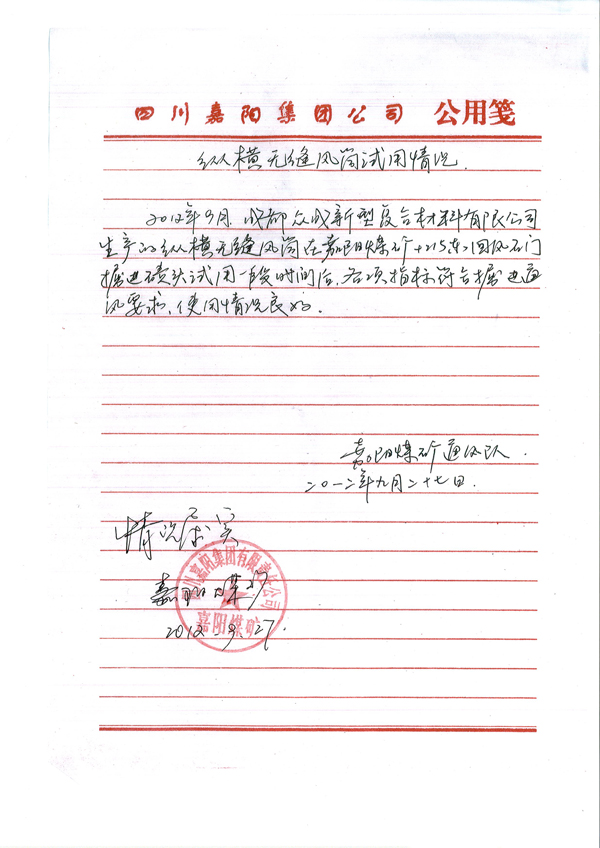 四川嘉阳集团公司 公用笺
纵横无缝风筒试用情况
2012年9月，成都众成新型复合材料有限公司
生产的纵横无缝风筒在嘉阳煤矿+215东回风石门
掘进碛头试用一段时间后，各项指标符合掘进通
风要求，使用情况良好。
嘉阳煤矿通风队
二〇一二年九月二十七日.
情况属实
嘉阳煤矿
2012.9.27.
四川嘉阳集团有限责任公司
嘉阳煤矿